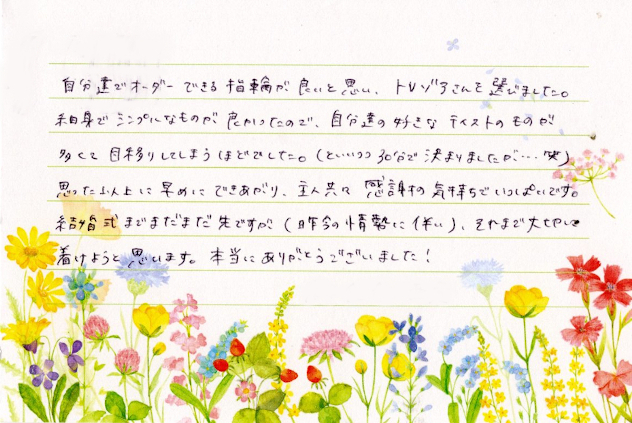 自分達でオーダーできる指輪が良いと思い、トレゾアさんを選びました。
細身でシンプルなものが良かったので、自分達の好きなテイストのものが
多くて目移りしてしまうほどでした。(といいつつ30分で決まりましたが…笑)
思った以上に早めにできあがり、主人共々感謝の気持ちでいっぱいです。
結婚式までまだまだ先ですが(昨今の情勢に伴い)、それまで大切に
着けようと思います。本当にありがとうございました!